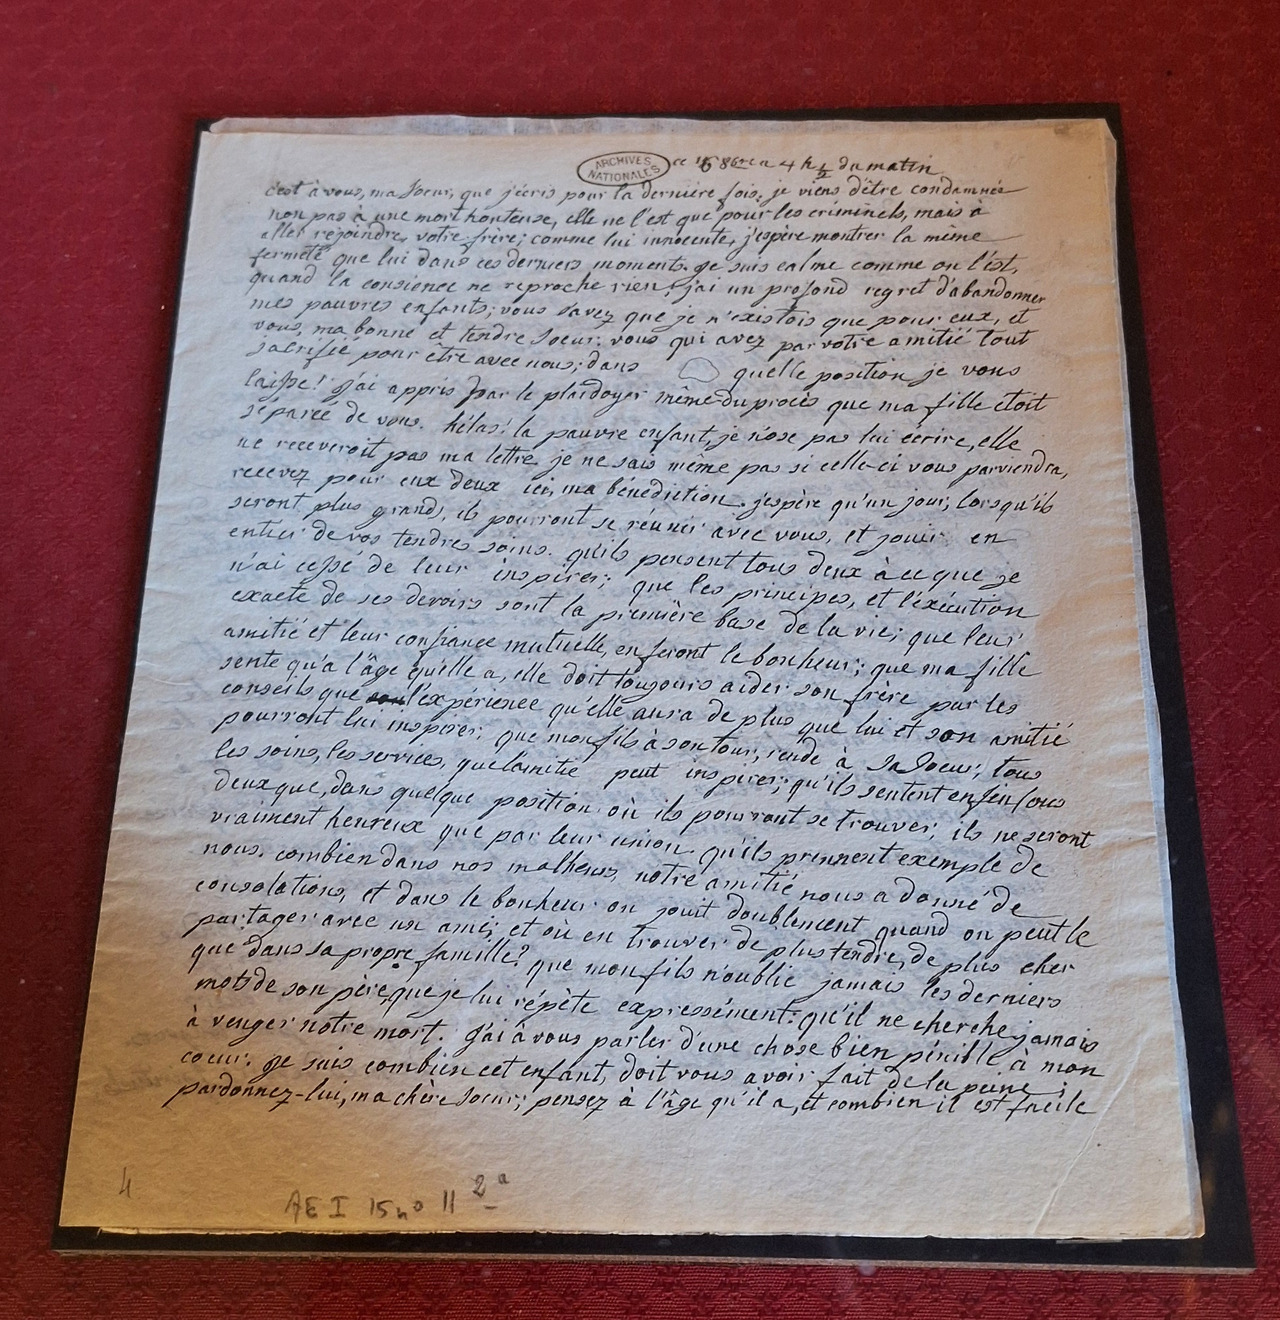 ARCHIVES NATIONALES
ce 16 8bre a 4 h ½ du matin
c'est à vous, ma Soeur, que j'écris pour la dernière fois. je viens d'être condamnée
non pas à une mort honteuse, elle ne l'est que pour les criminels, mais à
aller rejoindre votre frère; comme lui innocente, j'espère montrer la même
fermeté que lui dans ces derniers moments. je suis calme comme on l'est,
quand la consience ne reproche rien; j'ai un profond regret d'abandonner
mes pauvres enfants; vous savez que je n'existois que pour eux, et
vous, ma bonne et tendre Soeur. vous qui avez par votre amitié tout
sacrifié pour être avec nous; dans quelle position je vous
laisse! j'ai appris par le plaidoyer même du procès que ma fille étoit
séparée de vous. hélas! la pauvre enfant, je n'ose pas lui écrire, elle
ne receveroit pas ma lettre je ne sais même pas si celle-ci vous parviendra,
recevez pour eux deux ici, ma bénédiction. j'espère qu'un jour, lorsqu'ils
seront plus grands, ils pourront se réunir avec vous, et jouir en
entier de vos tendres soins. qu'ils pensent tous deux à ce que je
n'ai cessé de leur inspirer; que les principes, et l'exécution
exacte de ses devoirs sont la première base de la vie; que leur
amitié et leur confiance mutuelle, en feront le bonheur; que ma fille
sente qu'a l'âge qu'elle a, elle doit toujours aider son frère par les
conseils que l'expérience qu'elle aura de plus que lui et son amitié
pourront lui inspirer; que mon fils à son tour, rende à sa Soeur, tous
les soins, les services, que l'amitié peut inspirer; qu'ils sentent enfin tous
deux que, dans quelque position où ils pourront se trouver, ils ne seront
vraiment heureux que par leur union. qu'ils prennent exemple de
nous. combien dans nos malheurs, notre amitié nous a donné de
consolations, et dans le bonheur on jouit doublement quand on peut le
partager avec un ami; et où en trouver de plus tendre, de plus cher
que dans sa propre famille? que mon fils n'oublie jamais les derniers
mots de son père, que je lui répète expressément: qu'il ne cherche jamais
à venger notre mort. j'ai à vous parler d'une chose bien pénible à mon
coeur. je sais combien cet enfant, doit vous avoir fait de la peine;
pardonnez-lui, ma chère Soeur; pensez à l'âge qu'il a, et combien il est facile
4
AE I 15 no 11 2a